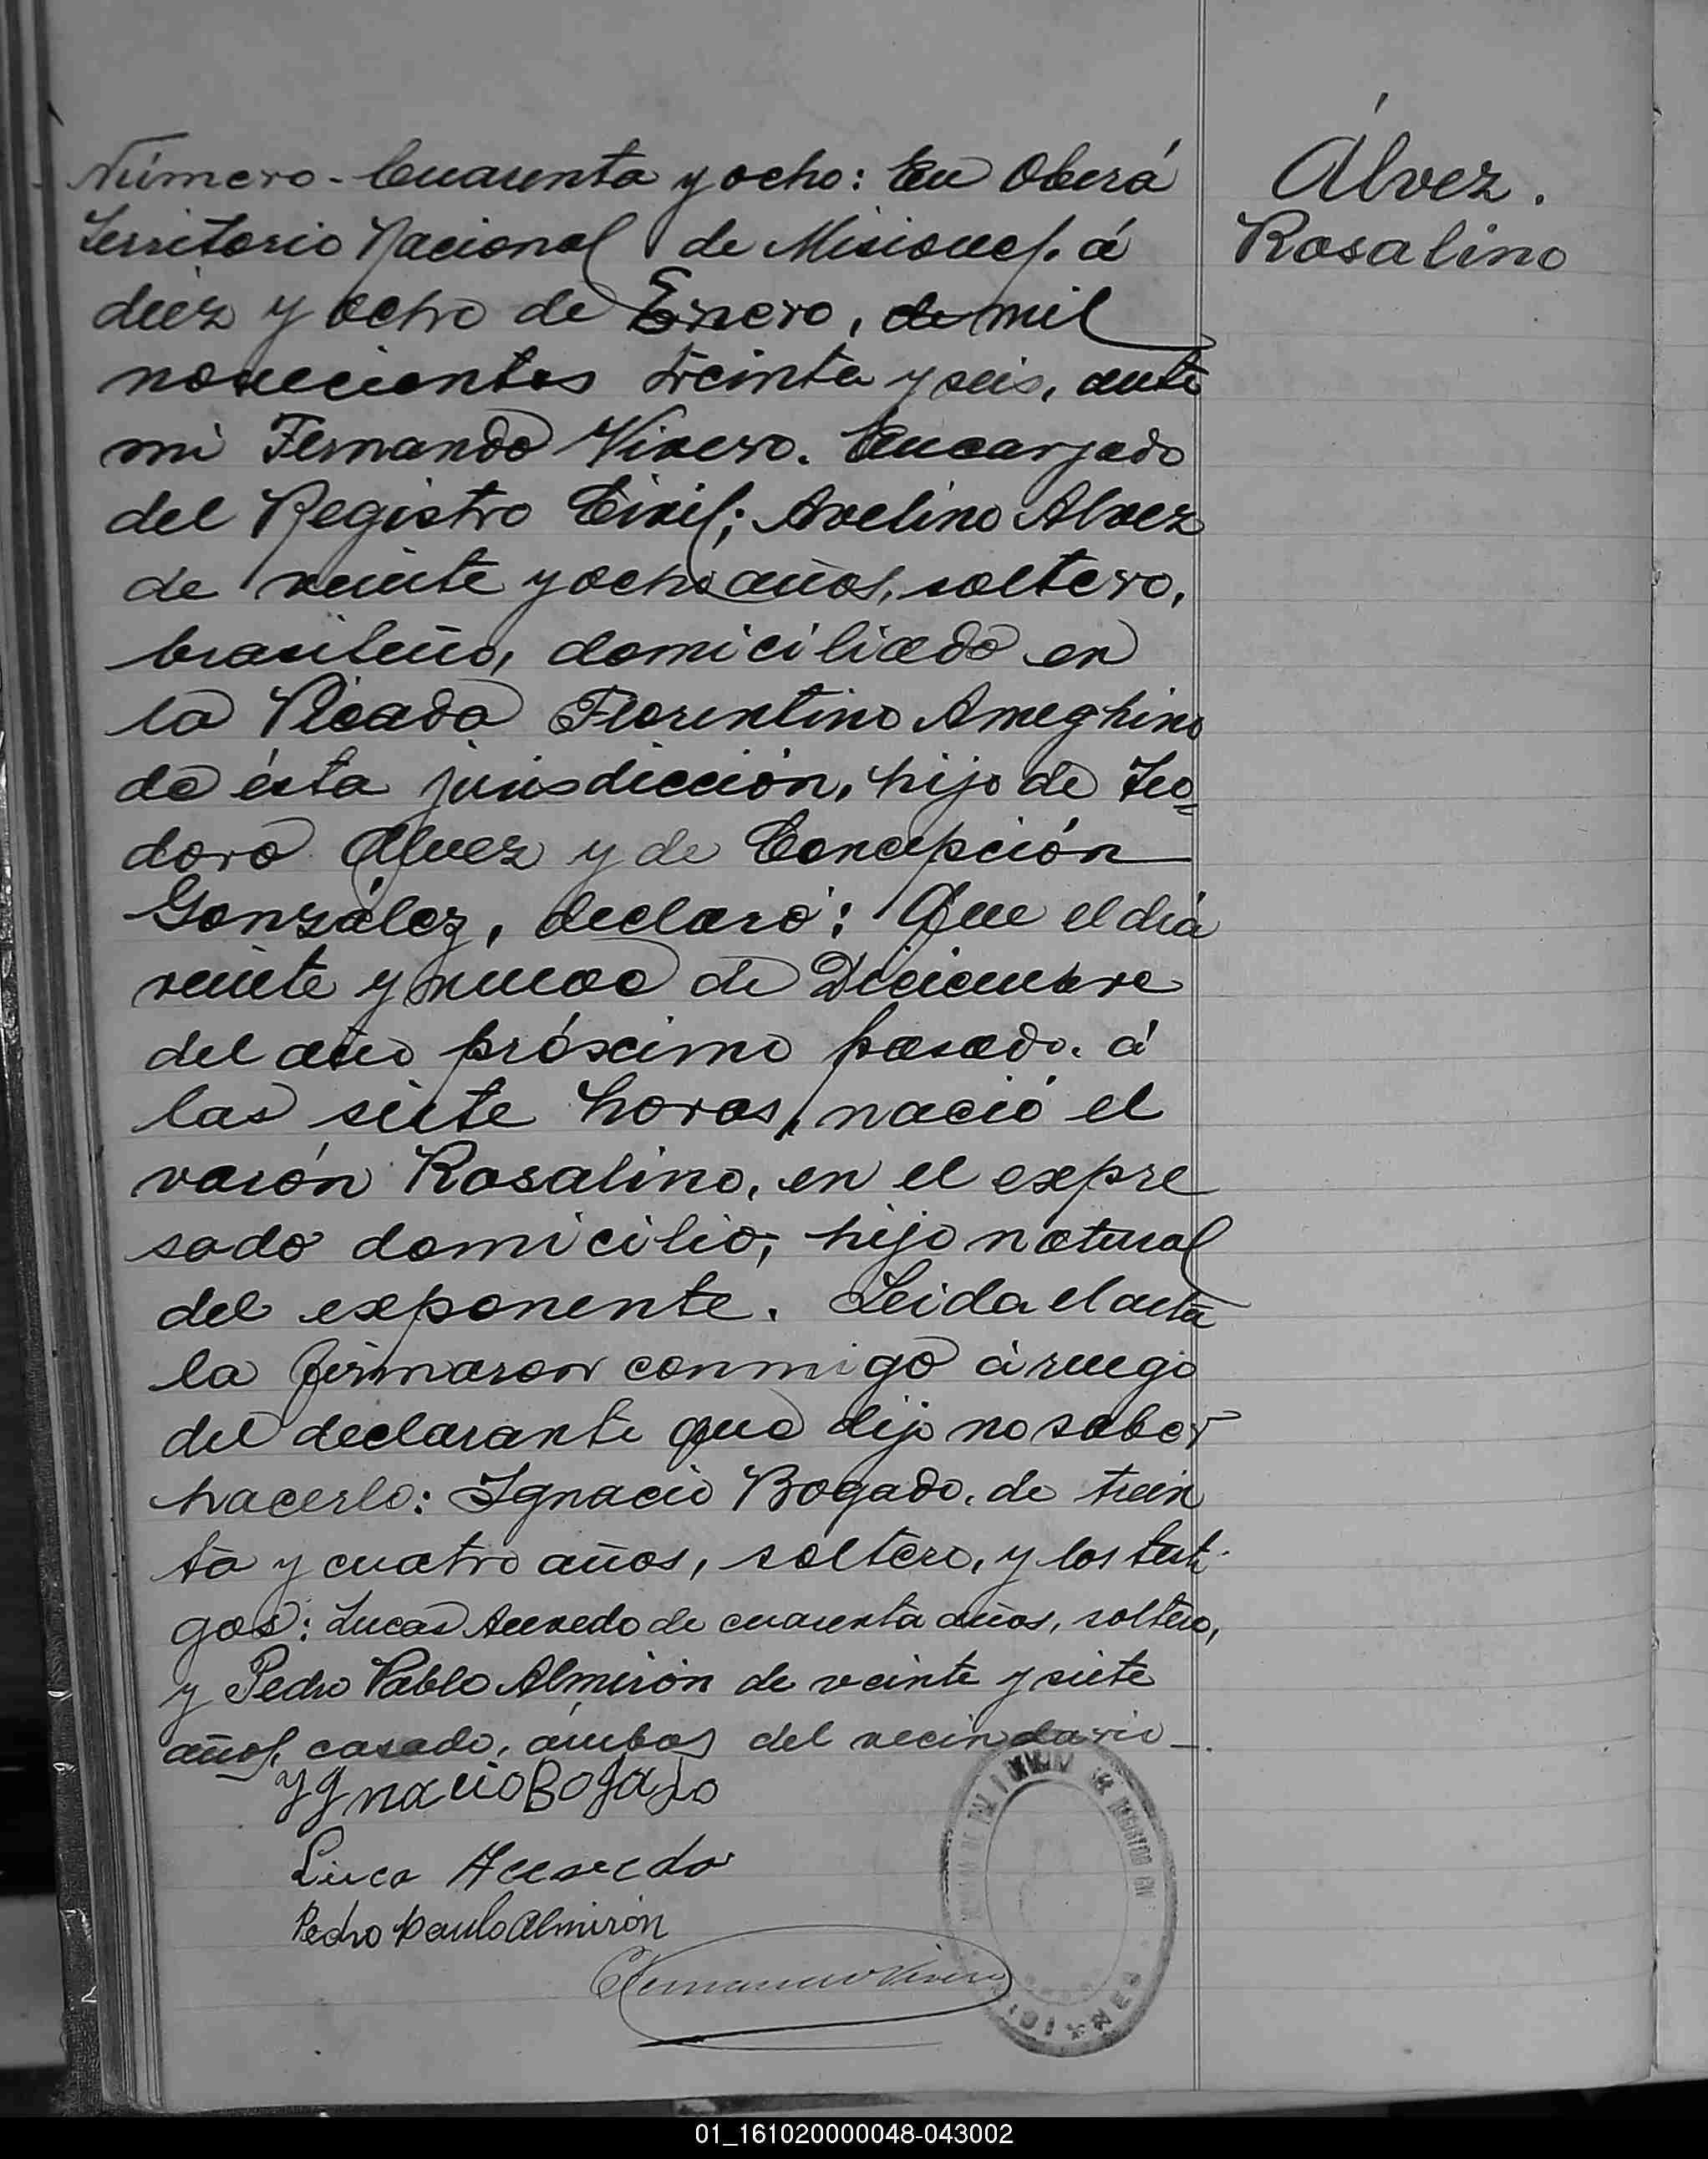 Número - Cuarenta y ocho: En Oberá
Territorio Nacional de Misiones, á
diez y ocho de Enero, de mil
novecientos treinta y seis, ante
mi Fernando Vivero. Encargado
del Registro Civil; Avelino Alvez
de veinte y ocho años, soltero,
brasileño, domiciliado en
la Picada Florentino Ameghino
de ésta jurisdicción, hijo de Teo=
doro Alvez y de Concepción
González, declaró: Que el día
veinte y nueve de Diciembre
del año próximo pasado. á
las siete horas, nació el
varón Rosalino, en el expre
sado domicilio; hijo natural
del exponente. Leida el acta
la firmaron conmigo á ruego
del declarante que dijo no saber
hacerlo: Ignacio Bogado. de trein
ta y cuatro años, soltero, y los testi-
gos: Lucas Acevedo de cuarenta años, soltero,
y Pedro Pablo Almirón de veinte y siete
años, casado, ámbos del vecindario —.
Ygnacio Bogado
Luca Acevedo
Pedro Paulo Almirón
Fernando Vivero
Álvez.
Rosalino
01_161020000048-043002